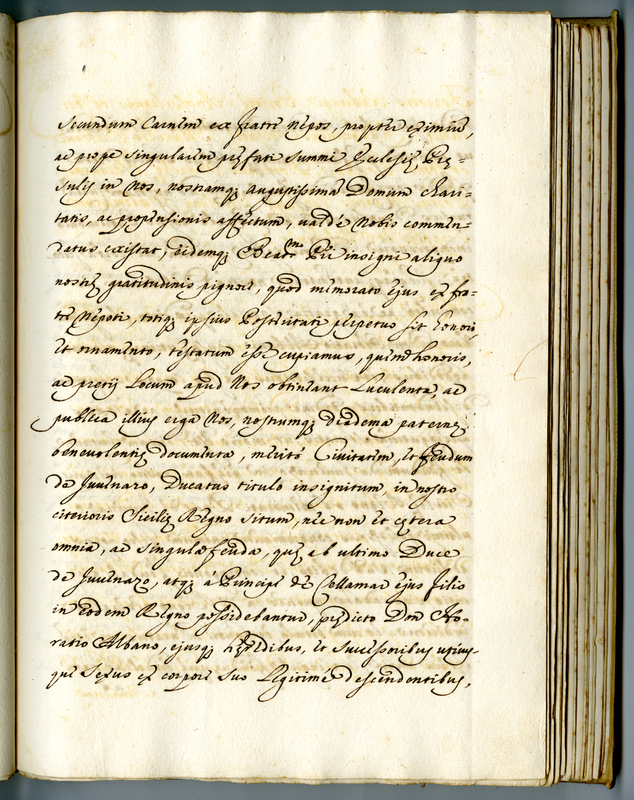 secundum Carnem ex fratre Nepos, propter eximiū,
ac prope singularem pręfati summi Ecclesię Prę=
sulis in Nos, nostramq; augustissimā Domum chari=
tatis, ac propensionis affectum, valdè Nobis commen=
datus existat, eidemq; Beat.mo P.ri insigni aliquo
nostrę gratitudinis pignore, quod memorato ejus ex fra=
tre Nepoti, totiq; ipsius Posteritati perpetuo sit honori,
et ornamento, testatum esse cupiamus, quem honoris,
ac pretij Locum apud Nos obtineant Luculenta, ac
publica illius erga Nos, nostrumq; Diadema paternę
benevolentię documenta, meritò Civitatem, et feudum
de Juvenazo, Ducatus titulo insignitum, in nostro
citerioris Sicilię Regno situm, nec non et cętera
omnia, ac singula feuda, quę ab ultimo Duce
de Juvenazo, atq; à Principe de Cellamar ejus filio
in eodem Regno possidebantur, prędicto Don Ho=
ratio Albano, ejusq; hęredibus, et successoribus utrius=
que sexus ex corpore suo Legitimè descendentibus,